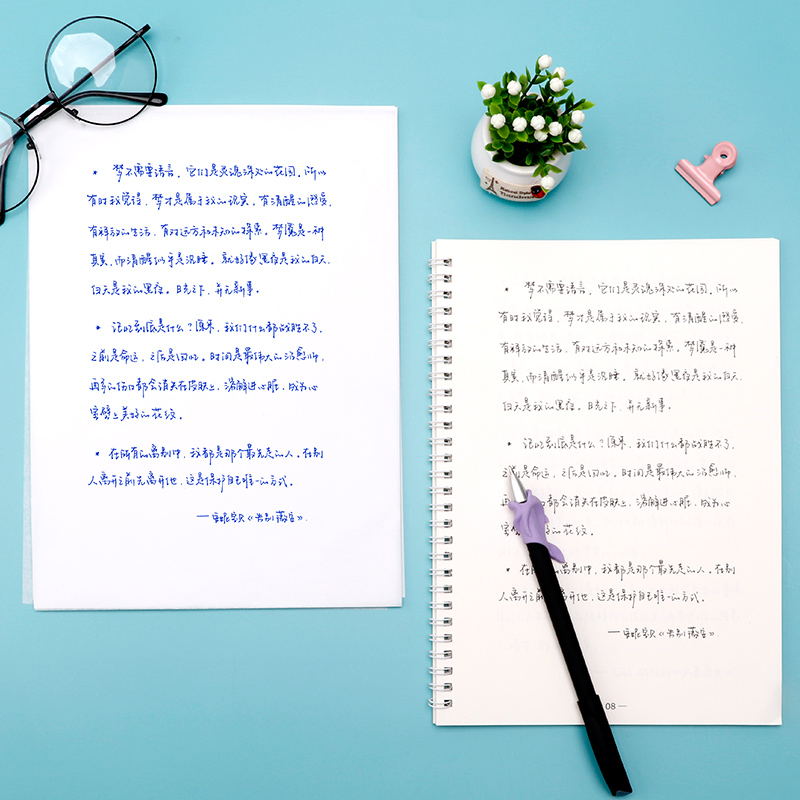 * 梦不需要语言，它们是灵魂深处的花园，所以
有时我觉得，梦才是属于我的现实，有清醒的感觉，
有释放的生活，有对远方和未知的探索。梦魇是一种
真实，而清醒似乎是沉睡。就好像黑夜是我的白天，
白天是我的黑夜。日光之下，并无新事。
* 记忆到底是什么？原来，我们什么都战胜不了，
之前是命运，之后是回忆。时间是最伟大的治愈师，
再多的伤口都会消失在皮肤上，溶解进心脏，成为心
室壁上美好的花纹。
* 在所有的离别中，我都是那个最先走的人。在别
人离开之前先离开他，这是保护自己唯一的方式。
——安妮宝贝《告别薇安》
* 梦不需要语言，它们是灵魂深处的花园，所以
有时我觉得，梦才是属于我的现实，有清醒的感觉，
有释放的生活，有对远方和未知的探索。梦魇是一
真实，而清醒似乎是沉睡。就好像黑夜是我的白天，
白天是我的黑夜。日光之下，并无新事。
* 记忆到底是什么？原来，我们什么都战胜不了，
之前是命运，之后是回忆。时间是最伟大的治愈师，
再 伤口都会消失在皮肤上，溶解进心脏，成为心
室 的花纹。
* 在 的离别中，我都是那个最先走的人。在别
人离开之前 离开他，这是保护自己唯一的方式。
——安妮宝贝《告别薇安》
08 —